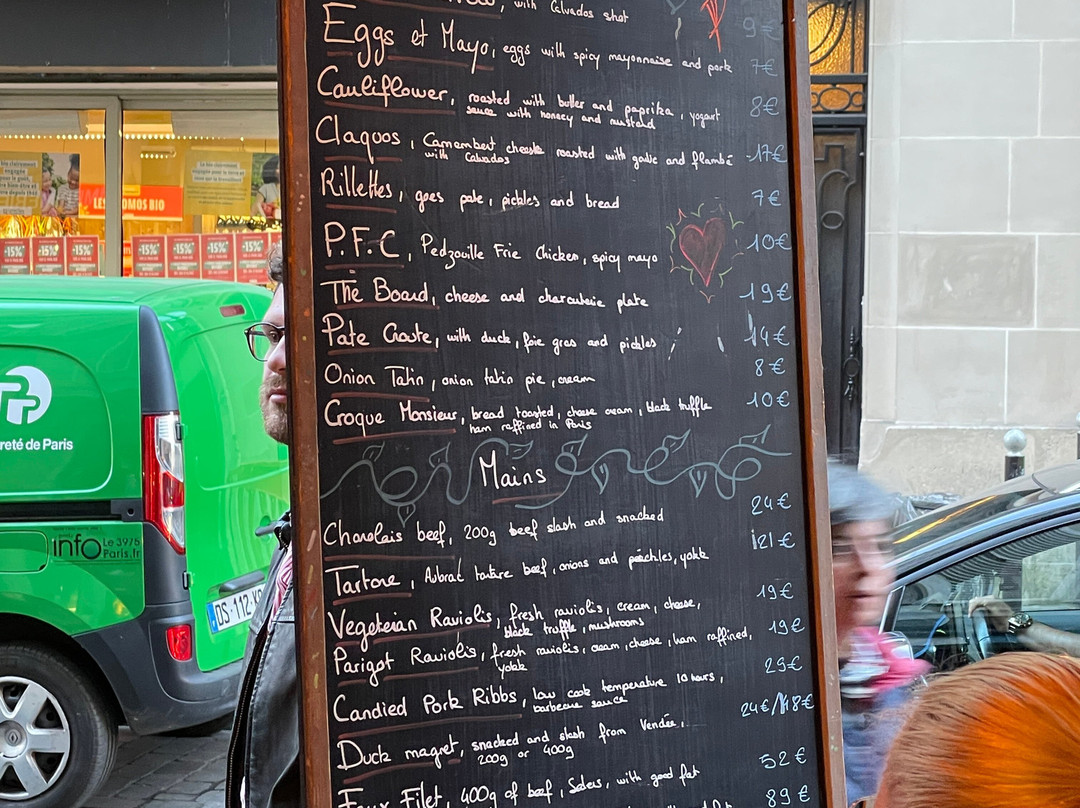 with Calvados shot
9€
Eggs et Mayo, eggs with spicy mayonnaise and pork 7€
Cauliflower, roasted with butter and paprika, yogurt 8€
sauce with honney and mustard
Claquos, Camembert cheese roasted with garlic and flambé 17€
with Calvados
Rillettes, goes pate, pickles and bread 7€
P.F.C, Pedzouille Frie Chicken, spicy mayo 10€
The Board, cheese and charcuterie plate 19€
Pate Croute, with duck, foie gras and pickles 14€
Onion Tatin, onion tatin pie, cream 8€
Croque Monsieur, bread toasted, cheese cream, black truffle 10€
ham raffined in Paris
Mains
Charolais beef, 200g beef slash and snacked 24€
Tartare, Aubrac tartare beef, onions and pickles, yolk 21€
Vegeterian Raviolis, fresh raviolis, cream, cheese, 19€
black truffle, mushrooms
Parigot Raviolis, fresh raviolis, cream, cheese, ham raffined, 19€
yolk
Candied Pork Ribbs, low cook temperature 10 hours, 29€
barbecue sauce
Duck magret, snacked and slash from Vendée, 24€/48€
200g or 400g
Faux Filet, 400g of beef, Salers, with good fat 52€
89€
LES PROMOS BIO
-15%
-15%
-15%
-15%
-15%
-15%
-15%
reté de Paris
info Le 3975
Paris.fr
DS-112-